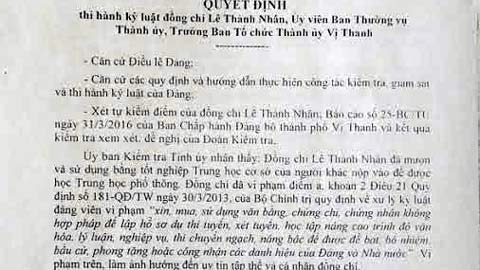 QUYẾT ĐỊNH
thi hành kỷ luật đồng chí Lê Thành Nhân, Ủy viên Ban Thường vụ
Thành ủy, Trưởng Ban Tổ chức Thành ủy Vị Thanh
- Căn cứ Điều lệ Đảng;
- Căn cứ các quy định và hướng dẫn thực hiện công tác kiểm tra, giám sát
và thi hành kỷ luật của Đảng;
- Xét tự kiểm điểm của đồng chí Lê Thành Nhân; Báo cáo số 25-BC/TU
ngày 31/3/2016 của Ban Chấp hành Đảng bộ thành phố Vị Thanh và kết quả
kiểm tra xem xét, đề nghị của Đoàn Kiểm tra.
Ủy ban Kiểm tra Tỉnh ủy nhận thấy: Đồng chí Lê Thành Nhân đã mượn
và sử dụng bằng tốt nghiệp Trung học cơ sở của người khác nộp vào để được
học Trung học phổ thông. Đồng chí đã vi phạm điểm a, khoản 2 Điều 21 Quy
định số 181-QĐ/TW ngày 30/3/2013, của Bộ Chính trị quy định về xử lý kỷ luật
đảng viên vi phạm "xin, mua, sử dụng văn bằng, chứng chỉ, chứng nhận không
hợp pháp để lập hồ sơ dự thi tuyển, xét tuyển, học tập nâng cao trình độ văn
hóa, lý luận, nghiệp vụ, thi chuyển ngạch, nâng bậc để được đề bạt, bổ nhiệm,
bầu cử, phong tặng hoặc công nhận các danh hiệu của Đảng và Nhà nước" Vi
phạm trên, làm ảnh hưởng đến uy tín tập thể và cá nhân đồng chí.